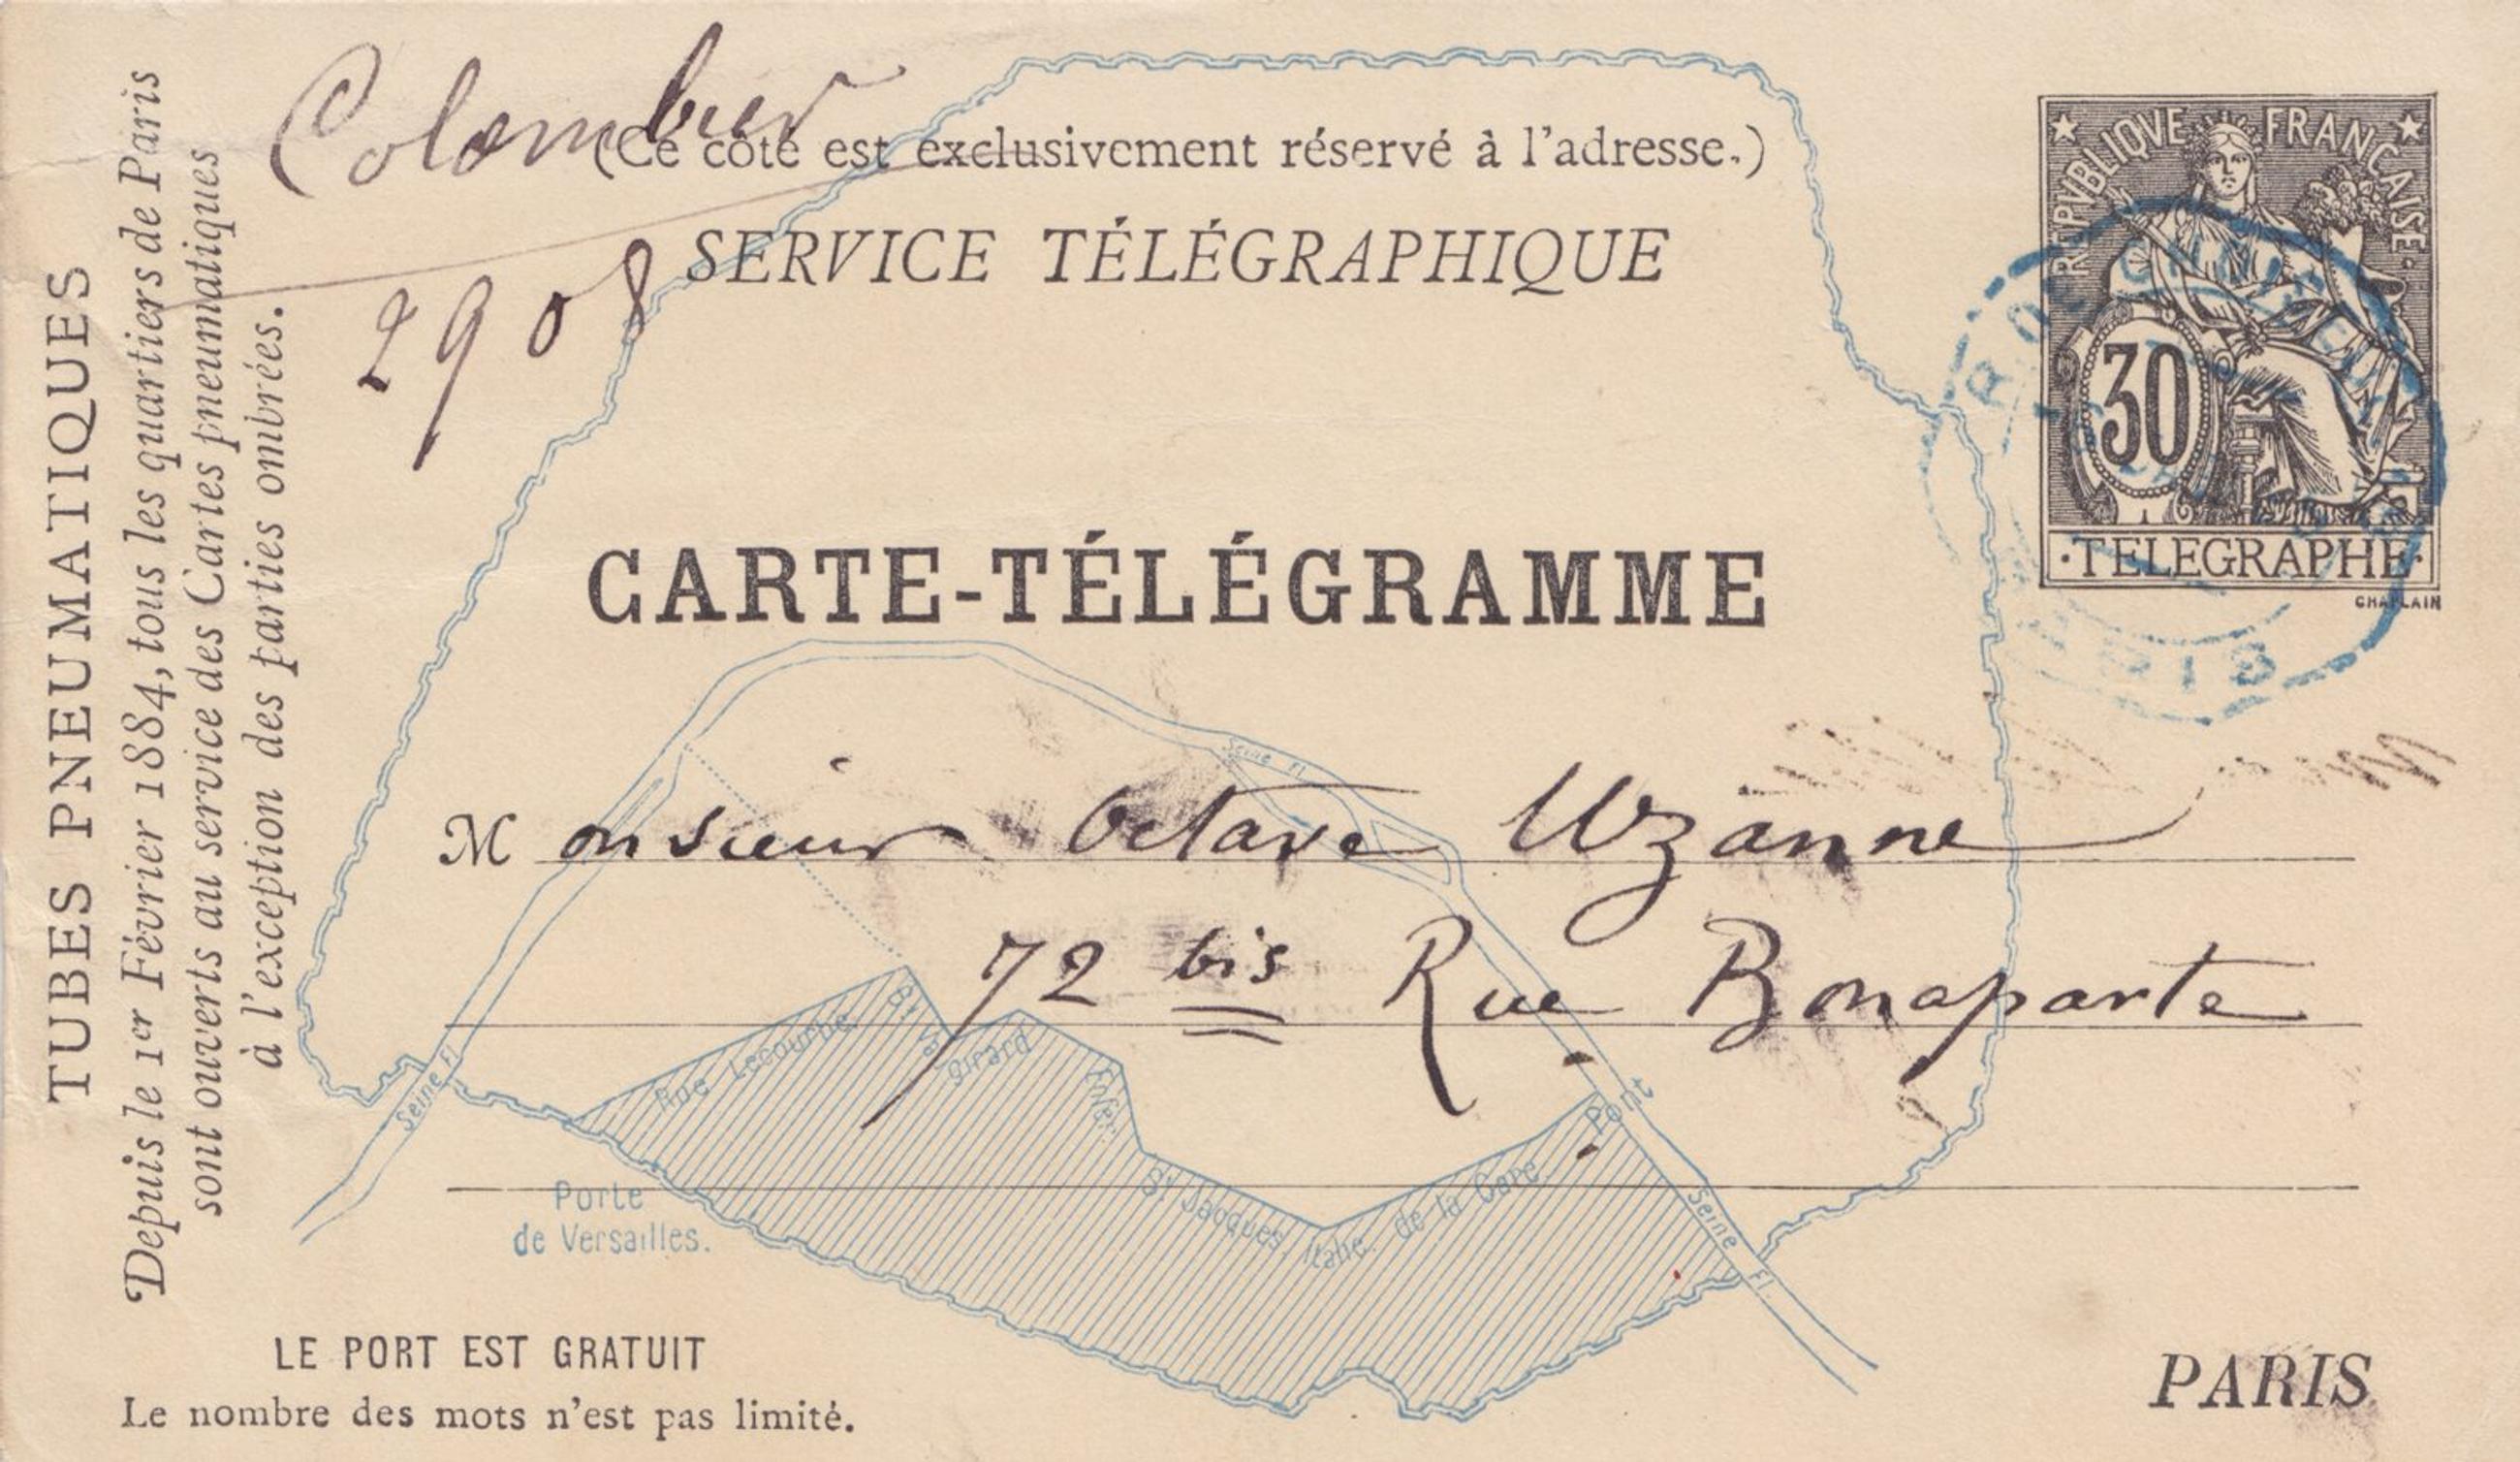 Colombier
(Ce côté est exclusivement réservé à l'adresse.)
SERVICE TÉLÉGRAPHIQUE
2908
REPVBLIQVE FRANCAISE
30
TELEGRAPHE
CHAPLAIN
PARIS
CARTE-TÉLÉGRAMME
TUBES PNEUMATIQUES
Depuis le 1er Février 1884, tous les quartiers de Paris
sont ouverts au service des Cartes pneumatiques
à l'exception des parties ombrées.
Seine Fl
Monsieur Octave Uzanne
72 bis Rue Bonaparte
Rue Lecourbe
Bd Vau
Girard
Enfer
St Jacques
Italie
de la Gare
Pont
Seine Fl
Seine Fl.
Porte
de Versailles.
LE PORT EST GRATUIT
Le nombre des mots n'est pas limité.
PARIS